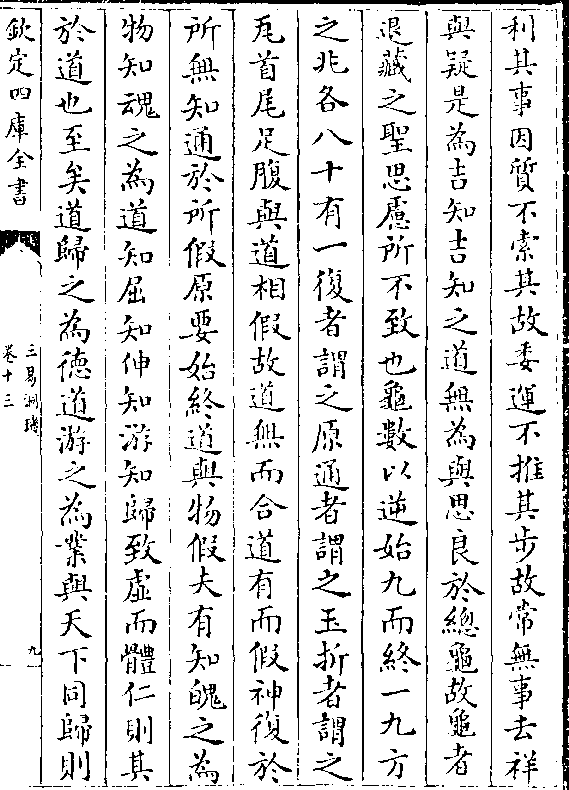 利其事因質不索其故委運不推其步故常無事去祥
與疑是為吉知吉知之道無為與思良於總龜故龜者
退藏之聖思慮所不致也龜數以逆始九而終一九方
之兆各八十有一復者謂之原通者謂之玉折者謂之
瓦首尾足腹與道相假故道無而合道有而假神復於
所無知通於所假原要始終道與物假夫有知魄之為
物知魂之為道知屈知伸知游知歸致虛而體仁則其
於道也至矣道歸之為德道游之為業與天下同歸則
欽定四庫全書
三易洞璣
卷十三
九